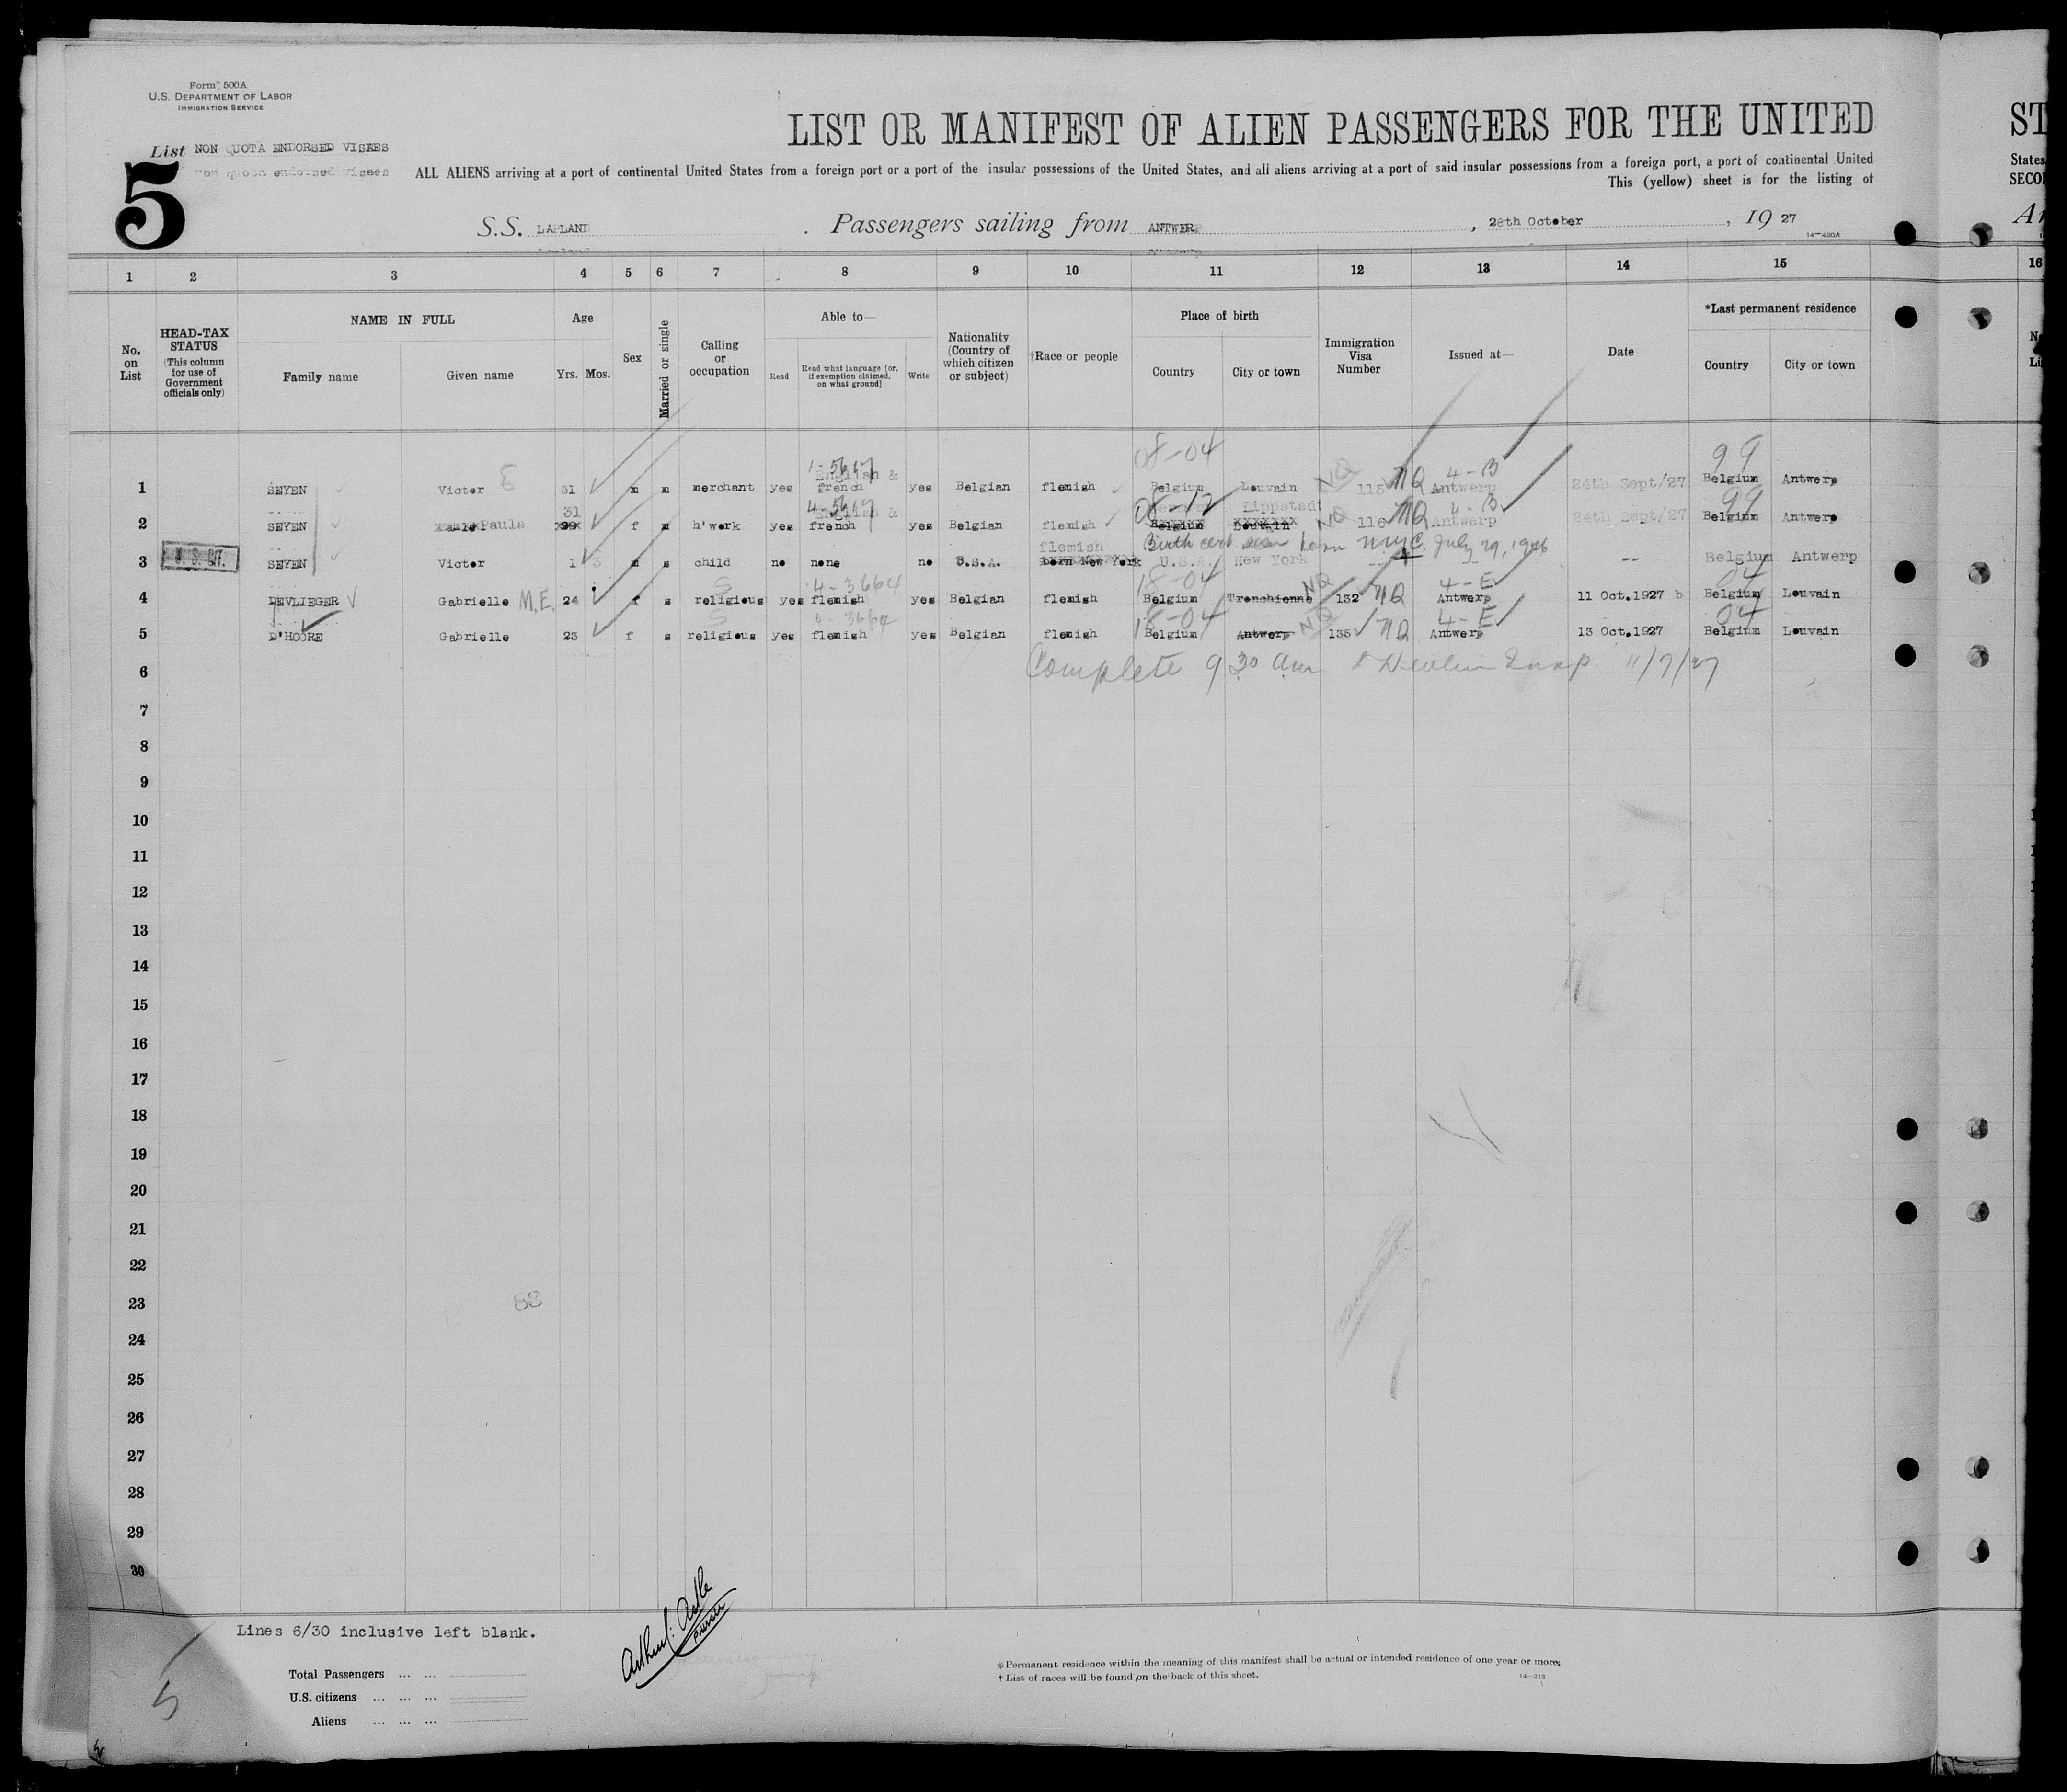 Form 500A
U.S. DEPARTMENT OF LABOR
IMMIGRATION SERVICE
LIST OR MANIFEST OF ALIEN PASSENGERS FOR THE UNITED
ST
List NON QUOTA ENDORSED VISEES
non quota endorsed visees
5
ALL ALIENS arriving at a port of continental United States from a foreign port or a port of the insular possessions of the United States, and all aliens arriving at a port of said insular possessions from a foreign port, a port of continental United
States
This (yellow) sheet is for the listing of
S.S. LAPLAND . Passengers sailing from ANTWERP , 28th October , 19 27
14—430A
1 2 3 4 5 6 7 8 9 10 11 12 13 14 15 16
No. on List
HEAD-TAX STATUS (This column for use of Government officials only)
NAME IN FULL
Family name Given name
Age
Yrs. Mos.
Sex
Married or single
Calling or occupation
Able to—
Read Read what language [or, if exemption claimed, on what ground] Write
Nationality (Country of which citizen or subject)
†Race or people
Place of birth
Country City or town
Immigration Visa Number
Issued at—
Date
*Last permanent residence
Country City or town
08-04 99
1-5617 English & 4-B
1 SEYEN Victor E 31 m m merchant yes french yes Belgian flemish Belgium Louvain NQ 115 NQ Antwerp 24th Sept/27 Belgium Antwerp
31 4-5617 English & 08-12 Lippstadt 4-B 99
2 SEYEN Paula f m h'work yes french yes Belgian flemish Belgium Louvain NQ 116 NQ Antwerp 24th Sept/27 Belgium Antwerp
flemish Birth cert seen born NYC. July 29, 1926
3 U. S. CIT. SEYEN Victor 1 3 m s child no none no U.S.A. born New York U.S.A. New York -- -- Belgium Antwerp
S 4-3664 18-04 NQ 4-E 04
4 DEVLIEGER Gabrielle M.E. 24 f s religious yes flemish yes Belgian flemish Belgium Tronchienne 132 NQ Antwerp 11 Oct.1927 b Belgium Louvain
S 4-3664 18-04 NQ 4-E 04
5 D'HOORE Gabrielle 23 f s religious yes flemish yes Belgian flemish Belgium Antwerp 135 NQ Antwerp 13 Oct.1927 Belgium Louvain
6 Complete 9 30 am Insp. 11/7/27
7
8
9
10
11
12
13
14
15
16
17
18
19
20
21
22
23
24
25
26
27
28
29
30
Lines 6/30 inclusive left blank.
Total Passengers ... ...
U.S. citizens ... ... ...
Aliens ... ... ...
5
Purser
* Permanent residence within the meaning of this manifest shall be actual or intended residence of one year or more.
† List of races will be found on the back of this sheet.
14—213